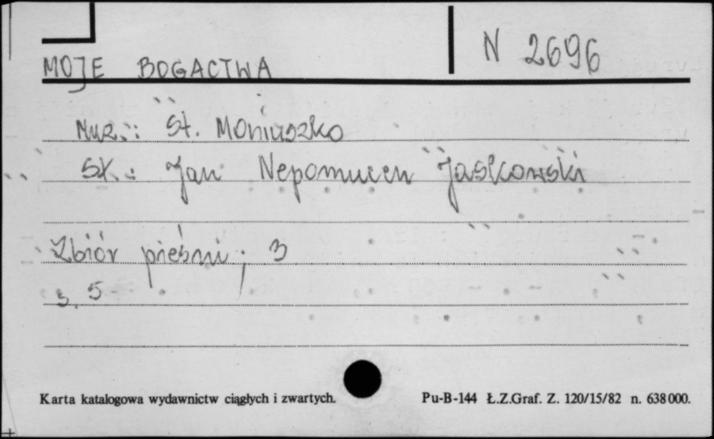 N 2696
MOJE BOGACTWA
Muz.: St. Moniuszko
Sł.: Jan Nepomucen Jaśkowski
Zbiór pieśni; 3
s. 5
Karta katalogowa wydawnictw ciągłych i zwartych.
Pu-B-144 Ł.Z.Graf. Z. 120/15/82 n. 638000.